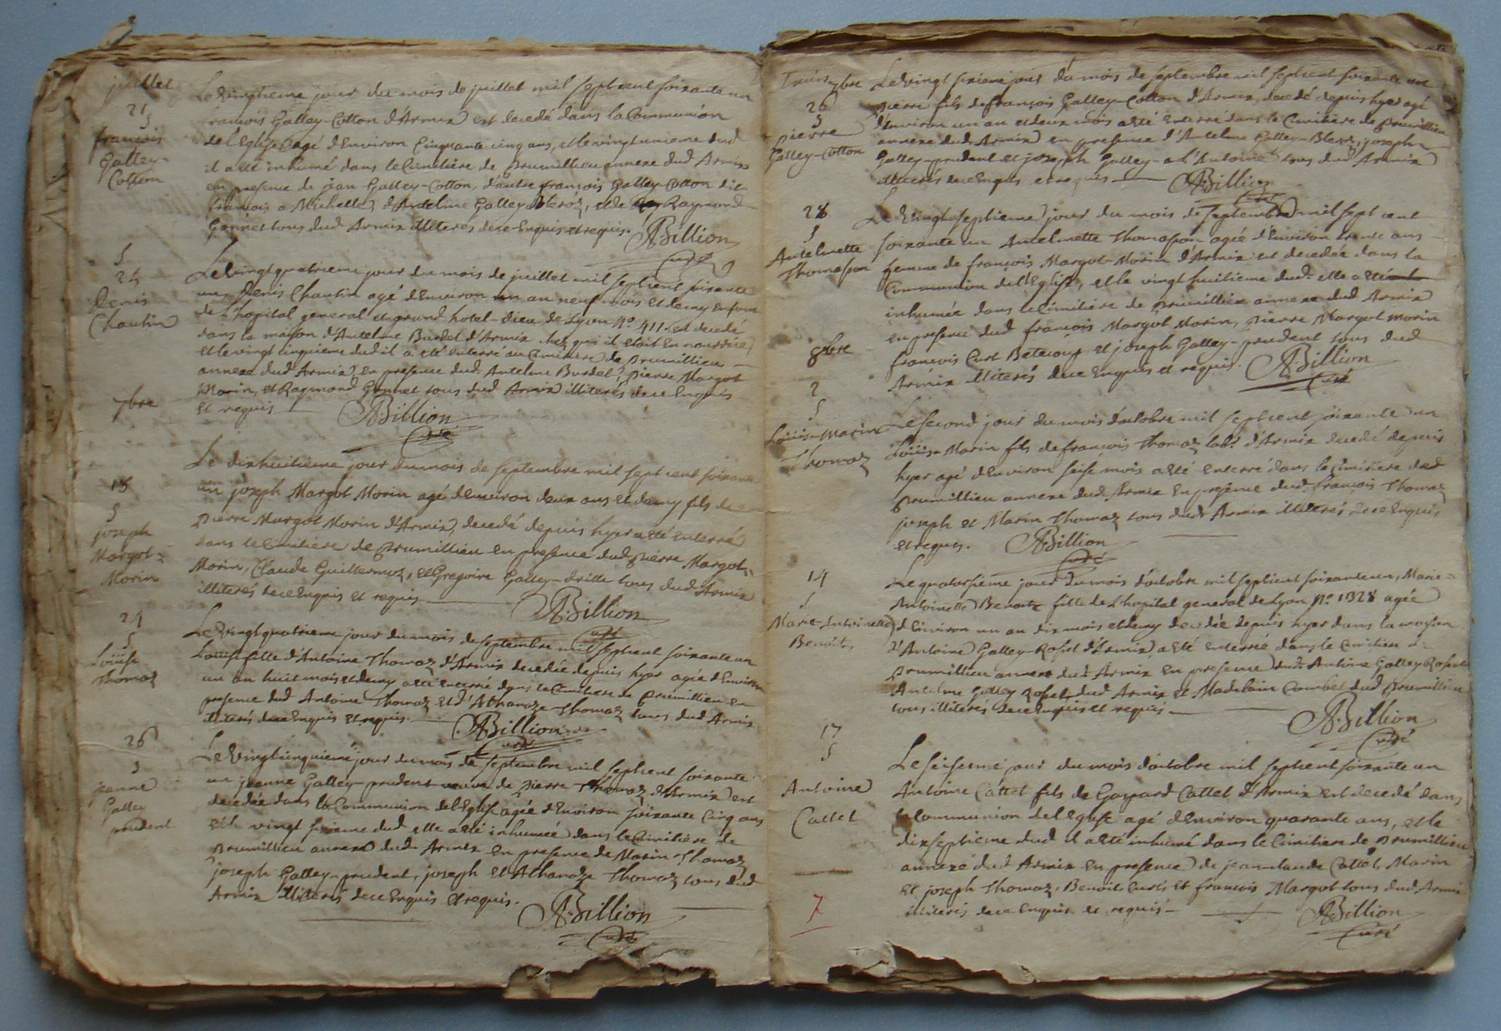 juillet
21
françois
Galley-
Cottom
Le vingtieme jour du mois de juillet mil sept cent soixante un
françois Galley-Cotton d'Armix est decedé dans la Communion
de l'Eglise agé d'Environ Cinquante cinq ans, et le vingt unieme dud
il a eté inhumé dans le Cimitière de Prumillieu annexe dud Armix
en presence de jean Galley-Cotton, d'autre françois Galley-Cotton dit
françois a Michelles, d'Antelme Galley Bleroz, et de Raymond
Gonnet tous dud Armix illiterés de ce Enquis et requis. ABillion
curé
24
Denis
Chautin
Le vingt quatrieme jour du mois de juillet mil sept cent soixante
un Denis Chautin agé d'environ un an neuf mois et demy enfant
de l'hopital general et grand hotel-Dieu de Lyon No 411 est decedé
dans la maison d'Antelme Burdel d'Armix chez qui il etoit en nourrice,
et le vingt cinquieme dud il a eté enterré au Cimitière de Prumillieu
annexe dud Armix, en presence dud Antelme Burdel, Pierre Margot
Morin, et Raymond Gonnet tous dud Armix illiterés de ce Enquis
et requis ABillion
curé
7bre
18
joseph
Margot-
Morin
Le dixhuitieme jour du mois de septembre mil sept cent soixante
un joseph Margot Morin agé d'Environ deux ans et demy fils de
Pierre Margot Morin d'Armix, decedé depuis hyer a eté enterré
dans le Cimitière de Prumillieu en presence dud Pierre Margot-
Morin, Claude Guillermoz, et Gregoire Galley-drille tous dud Armix
illiterés de ce Enquis et requis ABillion
curé
24
Loüise
Thomaz
Le vingt quatrieme jour du mois de septembre mil sept cent soixante un
Loüise fille d'Antoine Thomaz d'Armix decedée depuis hyer agée d'Environ
un an huit mois et demy a eté enterrée dans le Cimitiere de Prumillieu en
presence dud Antoine Thomaz et d'Athanaze Thomaz tous dud Armix
illiterés de ce Enquis et requis. ABillion
curé
26
jeanne
Galley
prudent
Le vingt cinquieme jour du mois de septembre mil sept cent soixante
un jeanne Galley-prudent veuve de Pierre Thomaz d'Armix est
decedée dans la Communion de l'Eglise agée d'Environ soixante Cinq ans
et le vingt sixieme dud elle a eté inhumée dans le Cimitière de
Prumillieu annexe dud Armix en presence de Marin Thomaz
joseph Galley-prudent, joseph et Athanaze Thomaz tous dud
Armix illiterés de ce Enquis et requis. ABillion
curé
7bre
26
Pierre
Galley-Cotton
Le vingt sixieme jour du mois de septembre mil sept cent soixante un
Pierre fils de françois Galley-Cotton d'Armix, decedé depuis hyer agé
d'Environ un an et deux mois a eté enterré dans le Cimitière de Prumillieu
annexe dud Armix en presence d'Antelme Galley-Bleroz, joseph
Galley-prudent et joseph Galley-a l'Antoine tous dud Armix
illiterés de ce Enquis et requis ABillion
curé
28
Antelmette
Thomasson
Le vingt septieme jour du mois de septembre mil sept cent
soixante un Antelmette Thomasson agée d'Environ trente ans
femme de françois Margot-Morin d'Armix est decedée dans la
Communion de l'Eglise, et le vingt huitieme dud elle a eté
inhumée dans le Cimitière de Prumillieu annexe dud Armix
en presence dud françois Margot Morin, Pierre Margot Morin
françois Curt Betacoup et joseph Galley-prudent tous dud
Armix illiterés de ce Enquis et requis. ABillion
curé
8bre
2
Loüis-Marin
Thomaz
Le second jour du mois d'octobre mil sept cent soixante un
Loüis Marin fils de françois Thomaz labr d'Armix decedé depuis
hyer agé d'Environ seise mois a eté enterré dans le Cimitiere dud
Prumillieu annexe dud Armix en presence dud françois Thomaz
joseph et Marin Thomaz tous dud Armix illiterés de ce Enquis
et requis. ABillion
curé
14
Marie Antoinette
Benoite
Le quatorsieme jour du mois d'octobre mil sept cent soixante un, Marie-
Antoinette Benoite fille de l'hopital general de Lyon No 1328 agée
d'Environ un an dix mois et demy decedée depuis hyer dans la maison
d'Antoine Galley-Rosset d'Armix, a eté enterrée dans le Cimitiere de
Prumillieu annexe dud Armix en presence dud Antoine Galley Rosset
Antelme Galley Rosset dud Armix et Madelain Combet dud Prumillieu
tous illiterés de ce Enquis et requis. ABillion
curé
17
Antoine
Cattet
Le seisieme jour du mois d'octobre mil sept cent soixante un
Antoine Cattet fils de Gaspard Cattet d'Armix est decedé dans
la Communion de l'Eglise agé d'Environ quarante ans, et le
dixseptieme dud il a eté inhumé dans le Cimitière de Prumillieu
annexe dud Armix en presence de jeanclaude Cattet, Marin
et joseph Thomaz, Benoit Curt et françois Margot tous dud Armix
illiterés de ce Enquis et requis ABillion
curé
7